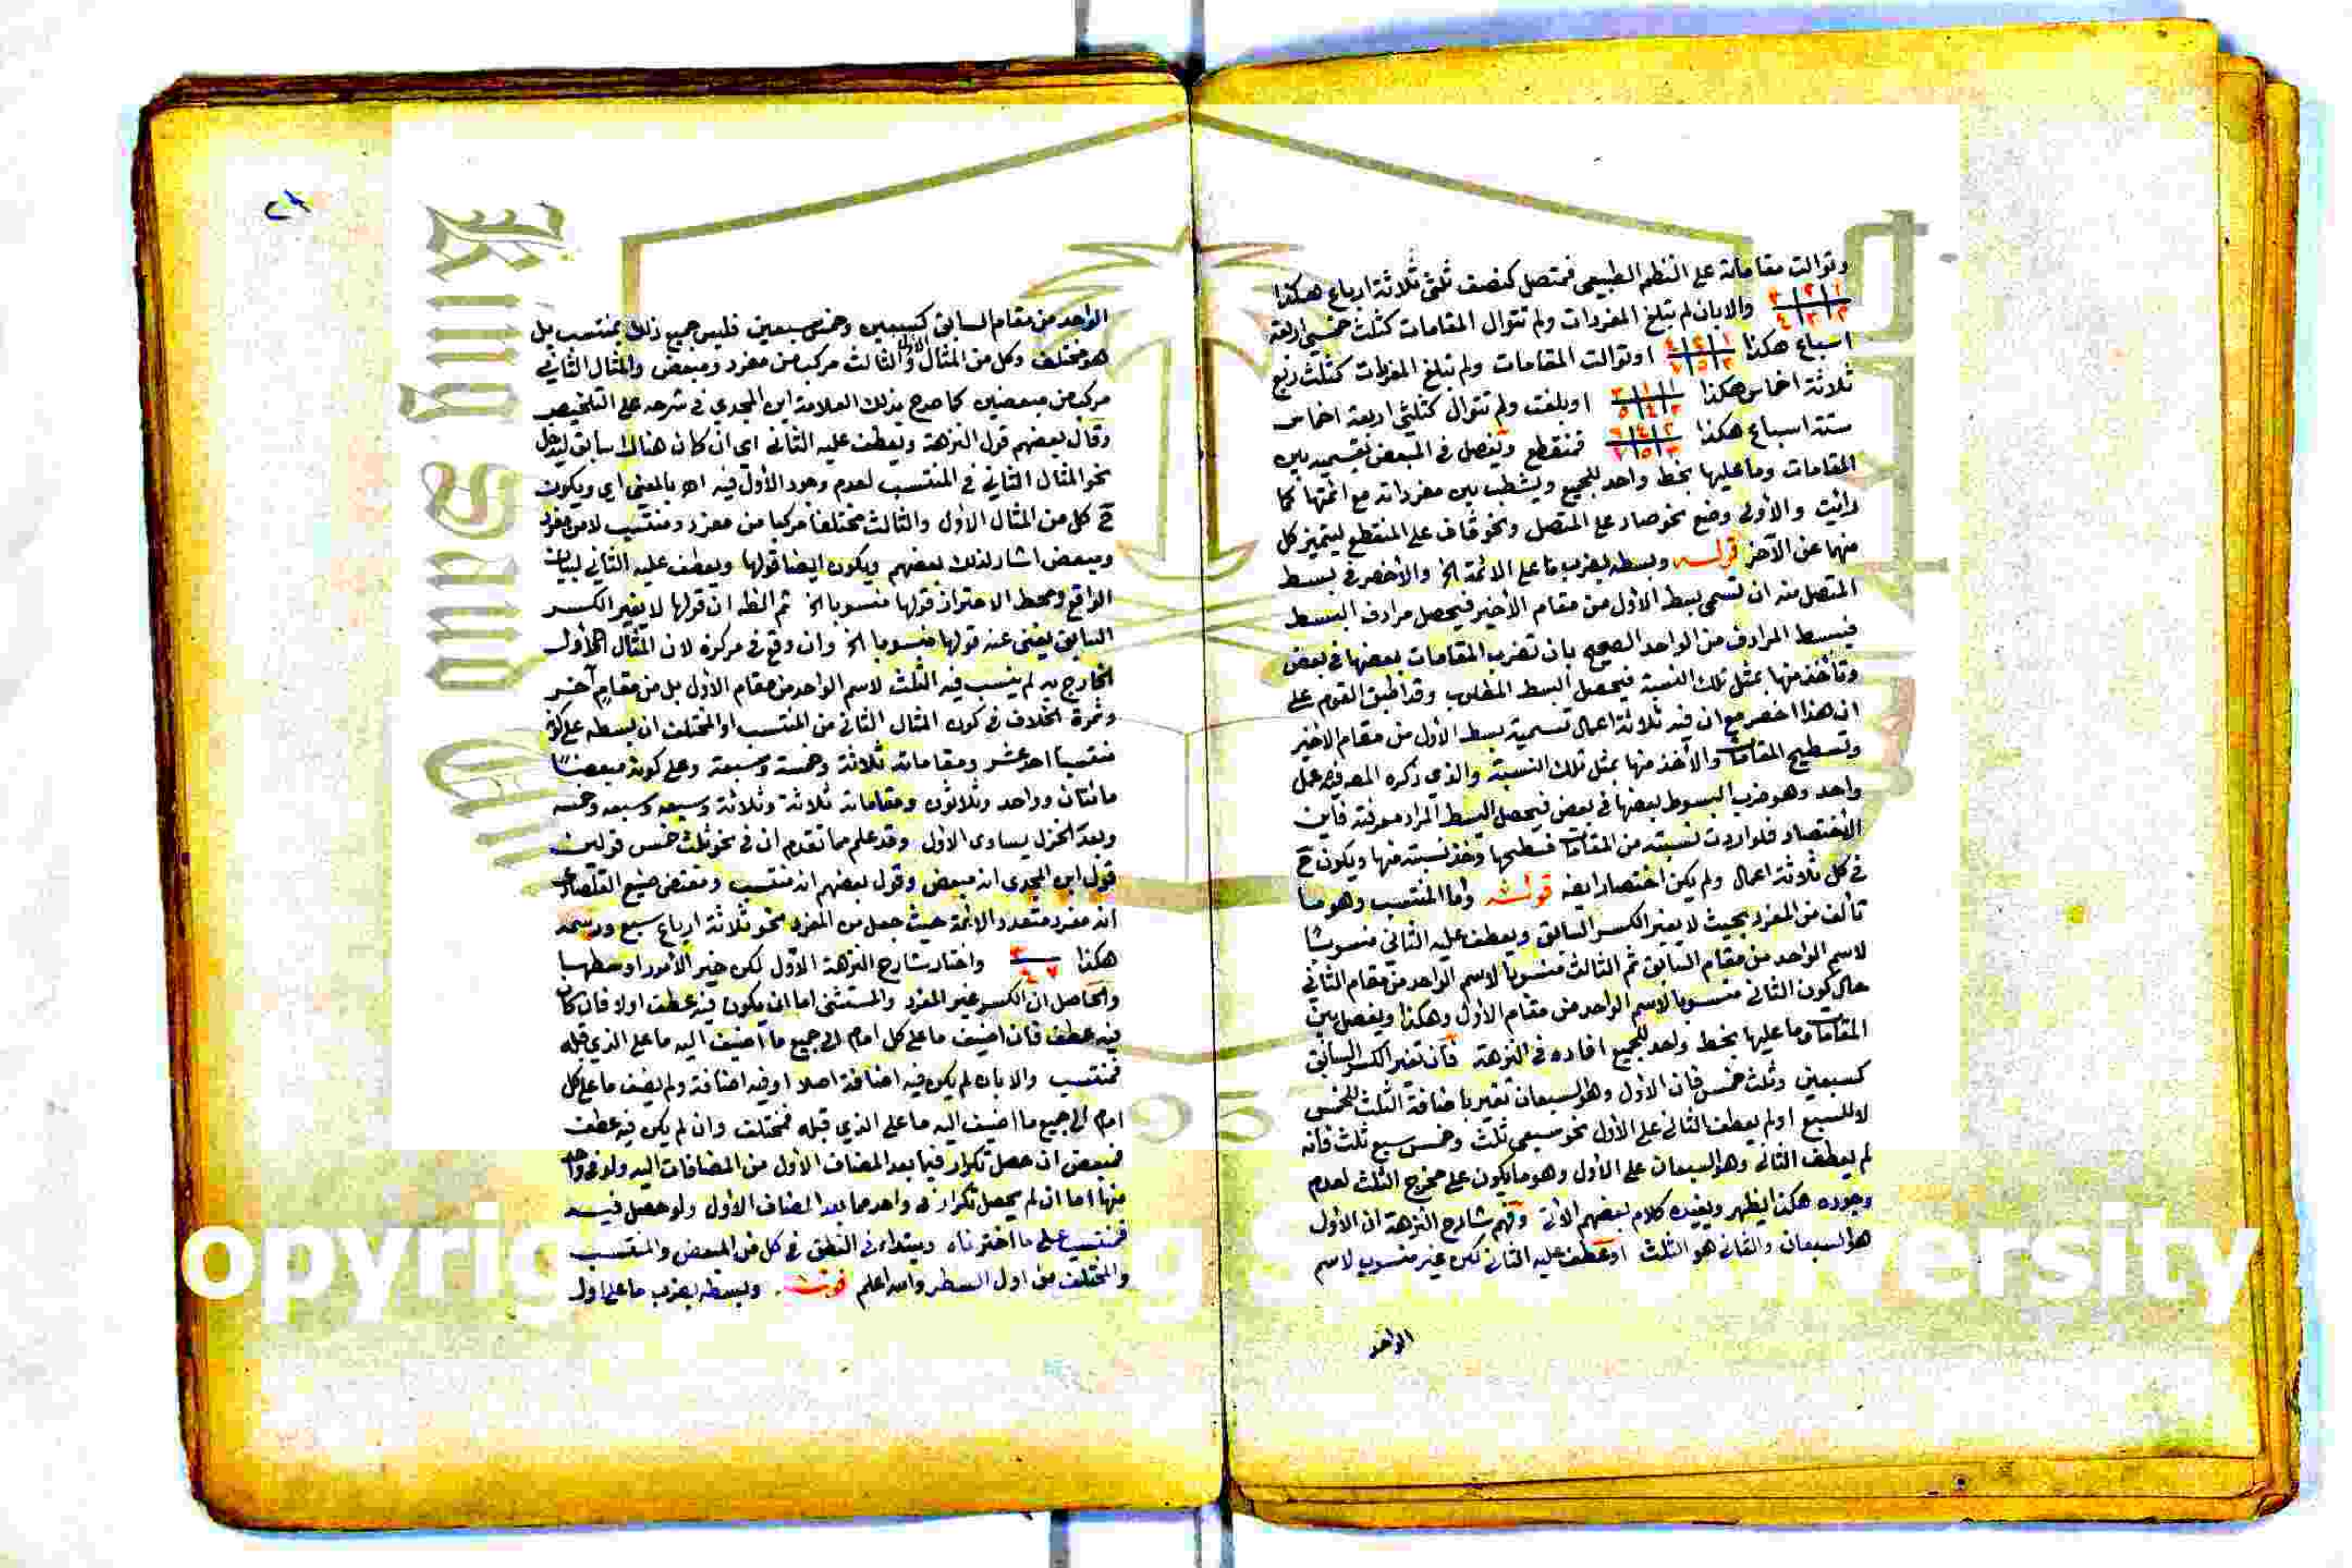 وتوالت مقاماته على النظم الطبيعي فمتصل كنصف ثلثي ثلاثة ارباع هكذا
١ ٢ ٣ والا بان لم تبلغ المفردات ولم تتوال المقامات كثلث خمسي اربعة
٢ ٣ ٤
اسباع هكذا ١ ٢ ٤ او توالت المقامات ولم تبلغ المفردات كثلث ربع
٣ ٥ ٧
ثلاثة اخماس هكذا ١ ١ ٣ او بلغت ولم تتوال كثلثي اربعة اخماس
٣ ٤ ٥
ستة اسباع هكذا ٢ ٤ ٦ فمنقطع ويفصل في المبعض بقسميه بين
٣ ٥ ٧
المقامات وما عليها بخط واحد للجميع ويشطب بين مفرداته مع ائمتها كما
رائيت والأولى وضع نحو صاد على المتصل ونحو قاف على المنقطع ليتميز كل
منهما عن الآخر قوله وبسطه بضرب ما على الائمة الخ والأخصر في بسط
المتصل منه ان تسمي بسط الأول من مقام الأخير فيحصل مرادف البسط
فيبسط المرادف من الواحد الصحيح بان تضرب المقامات بعضها في بعض
وتأخذ منها بمثل تلك النسبة فيحصل البسط المطلوب وقد اطبق القوم على
ان هذا اخصر مع ان فيه ثلاثة اعمال تسمية بسط الأول من مقام الاخير
وتسطيح المقامات والأخذ منها بمثل تلك النسبة والذي ذكره المص فيه عمل
واحد وهو ضرب البسوط بعضها في بعض فيحصل البسط المراد معرفته فاين
الاختصار فلو اردت نسبته من المقامات فسطحها وخذ نسبته منها ويكون ح
في كل ثلاثة اعمال ولم يكن اختصار ايضه قوله واما المنتسب وهو ما
تألف من المفرد بحيث لا يغير الكسر السابق ويعطف عليه الثاني منسوبا
لاسم الواحد من مقام السابق ثم الثالث منسوبا لاسم الواحد من مقام الثاني
حال كون الثاني منسوبا لاسم الواحد من مقام الأول وهكذا ويفصل بين
المقامات وما عليها بخط واحد للجميع افاده في النزهة فان تغير الكسر السابق
كسبعين وثلث خمس فان الاول وهو السبعان تغير باضافة الثلث للخمس
لا للسبع او لم يعطف الثاني على الأول نحو سبعي ثلث وخمس سبع ثلث فانه
لم يعطف الثاني وهو السبعان على الأول وهو ما يكون على مخرج الثلث لعدم
وجوده هكذا يظهر ويفيده كلام بعضهم الآتي وفهم شارح النزهة ان الأول
هو السبعان والثاني هو الثلث او عطف عليه الثاني لكن غير منسوب لاسم
الواحد
٢٩
الواحد من مقام السابق كسبعين وخمس سبعين فليس جميع ذلك بمنتسب بل
هو مختلف وكل من المثال الأول والثالث مركب من مفرد ومبعض والمثال الثاني
مركب من مبعضين كما صرح بذلك العلامة ابن المجدي في شرحه على التلخيص
وقال بعضهم قول النزهة ويعطف عليه الثاني اي ان كان هناك سابق ليدخل
نحو المثال الثاني في المنتسب لعدم وجود الأول فيه اهـ بالمعنى اي ويكون
ح كل من المثال الأول والثالث مختلفا مركبا من مفرد ومنتسب لا من مفرد
ومبعض اشار لذلك بعضهم ويكون ايضا قولها ويعطف عليه الثاني لبيان
الواقع ومحط الاحتراز قولها منسوبا الخ ثم الظه ان قولها لا يغير الكسر
السابق يغني عنه قولها منسوبا الخ وان وقع في مركزه لان المثال الأول
الخارج به لم ينسب فيه الثلث لاسم الواحد من مقام الأول بل من مقام آخر
وثمرة الخلاف في كون المثال الثاني من المنتسب او المختلف ان بسطه على كونه
منتسبا احد عشر ومقاماته ثلاثة وخمسة وسبعة وعلى كونه مبعضا
مائتان وواحد وثلاثون ومقاماته ثلاثة وثلاثة وسبعة وسبعة وخمسة
وبعد الخزل يساوي الاول وقد علم مما تقدم ان في نحو ثلث خمس قولين
قول ابن المجدي انه مبعض وقول بعضهم انه منتسب ومقتضى صنيع القلصادي
انه مفرد متعدد الائمة حيث جعل من المفرد نحو ثلاثة ارباع سبع ورسمه
هكذا ٣ واختار شارح النزهة الأول لكن خير الأمور اوسطها
٧ ٤
والحاصل ان الكسر غير المفرد والمستثنى اما ان يكون فيه عطف اولا فان كان
فيه عطف فان اضيف ما على كل امام الى جميع ما اضيف اليه ما على الذي قبله
فمنتسب والا بان لم يكن فيه اضافة اصلا او فيه اضافة ولم يضف ما على كل
امام الى جميع ما اضيف اليه ما على الذي قبله فمختلف وان لم يكن فيه عطف
فمبعض ان حصل تكرار فيما بعد المضاف الأول من المضافات اليه ولو في واحد
منها اما ان لم يحصل تكرار في واحد مما بعد المضاف الأول ولو حصل فيه
فمنتسب على ما اخترناه ويبتداء في النطق في كل من المبعض والمنتسب
والمختلف من اول السطر والله اعلم قوله وبسطه بضرب ما على اول